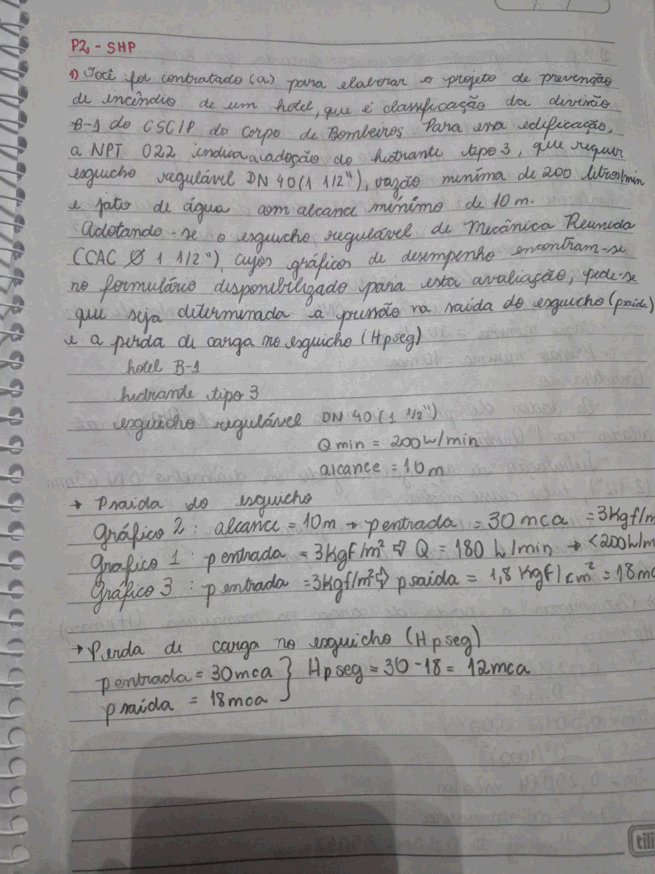 P2 - SHP
1) Você foi contratado(a) para elaborar o projeto de prevenção
de incêndio de um hotel, que é classificação da divisão
B-1 do CSCIP do Corpo de Bombeiros. Para essa edificação,
a NPT 022 indica a adoção do hidrante tipo 3, que requer
esguicho regulável DN 40 (1 1/2"), vazão mínima de 200 litros/min
e jato de água com alcance mínimo de 10 m.
Adotando-se o esguicho regulável de Mecânica Reunida
(CAC Ø 1 1/2"), cujos gráficos de desempenho encontram-se
no formulário disponibilizado para esta avaliação, pede-se
que seja determinada a pressão na saída do esguicho (psaída)
e a perda de carga no esguicho (Hpseg)
hotel B-1
hidrante tipo 3
esguicho regulável DN 40 (1 1/2")
Qmin = 200 L/min
alcance = 10 m
→ Psaida do esguicho
Gráfico 2: alcance = 10m → pentrada = 30 mca = 3 Kgf/m
Grafico 1: pentrada = 3Kgf/m² ⇒ Q = 180 L/min → <200 L/m
Gráfico 3: pentrada = 3Kgf/m² ⇒ psaída = 1,8 Kgf/cm² = 18mc
→ Perda de carga no esguicho (Hpseg)
pentrada = 30mca } Hpseg = 30 - 18 = 12mca
psaida = 18mca
tili